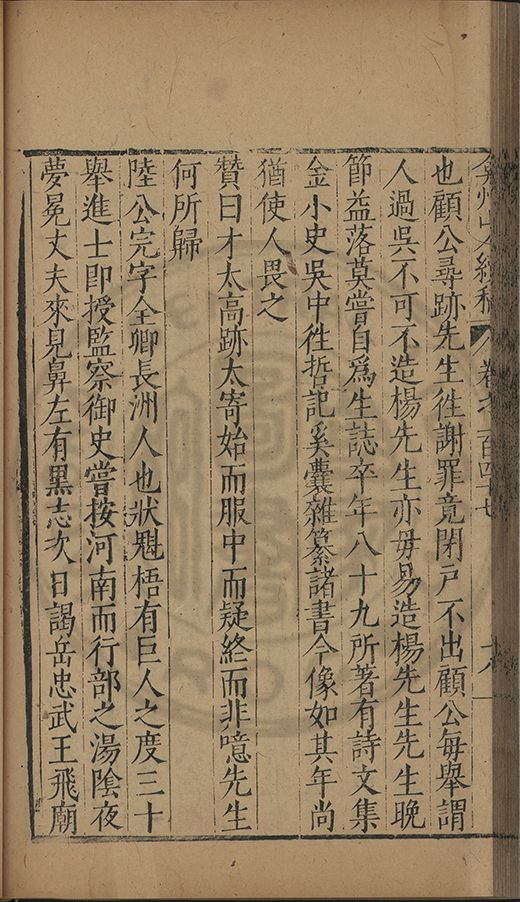 弇州山人續稿 卷之一百四十七
也顧公尋跡先生徃謝罪竟閉戸不出顧公每舉謂
人過吳不可不造楊先生亦毋易造楊先生先生晚
節益落莫嘗自爲生誌卒年八十九所著有詩文集
金小史吳中徃哲記奚囊雜纂諸書今像如其年尚
猶使人畏之
贊曰才太高跡太寄始而服中而疑終而非噫先生
何所歸
陸公完字全卿長洲人也狀魁梧有巨人之度三十
舉進士即授監察御史嘗按河南而行部之湯隂夜
夢冕丈夫來見鼻左有黑志次日謁岳忠武王飛廟